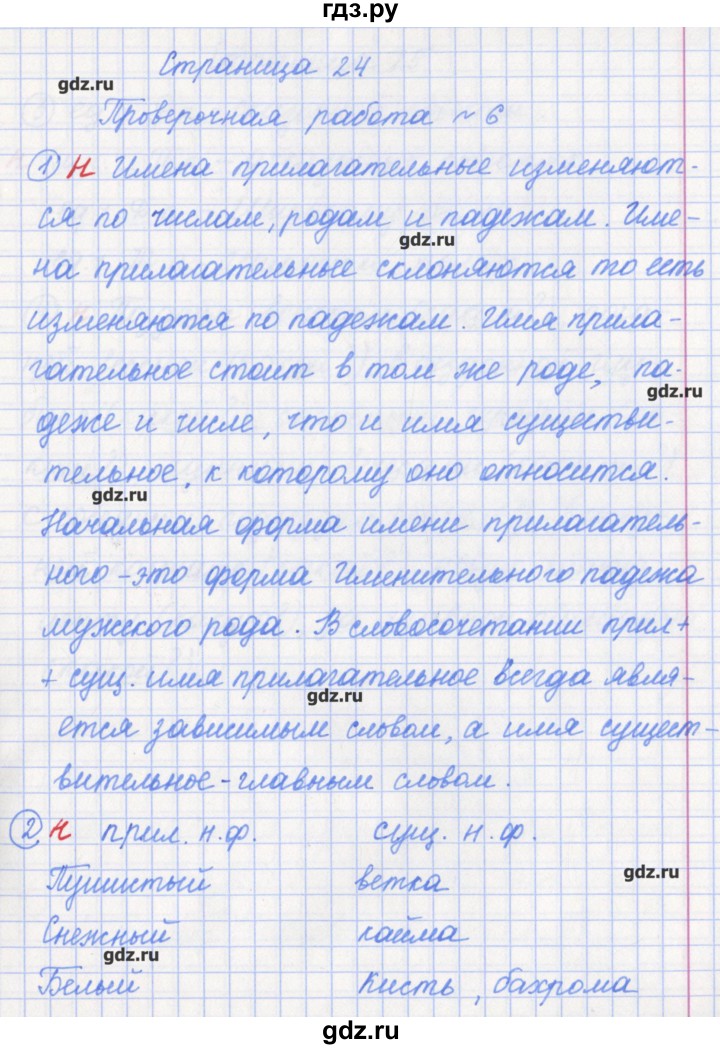 гдз.ру
Страница 24
gdz.ru
Проверочная работа ~ 6
1) Н Имена прилагательные изменяют-
ся по числам, родам и падежам. Име-
gdz.ru
на прилагательные склоняются то есть
изменяются по падежам. Имя прила-
гательное стоит в том же роде, па-
gdz.ru
деже и числе, что и имя существи-
тельное, к которому оно относится.
gdz.ru
Начальная форма имени прилагатель-
ного - это форма Именительного падежа
мужского рода. В словосочетании прил+
+ сущ. имя прилагательное всегда явля-
gdz.ru
ется зависимым словом, а имя сущест-
вительное - главным словом.
2) Н прил. н.ф. сущ. н.ф.
gdz.ru
Пушистый ветка
Снежный кайма
gdz.ru
Белый Кисть, бахрома
gdz.ru